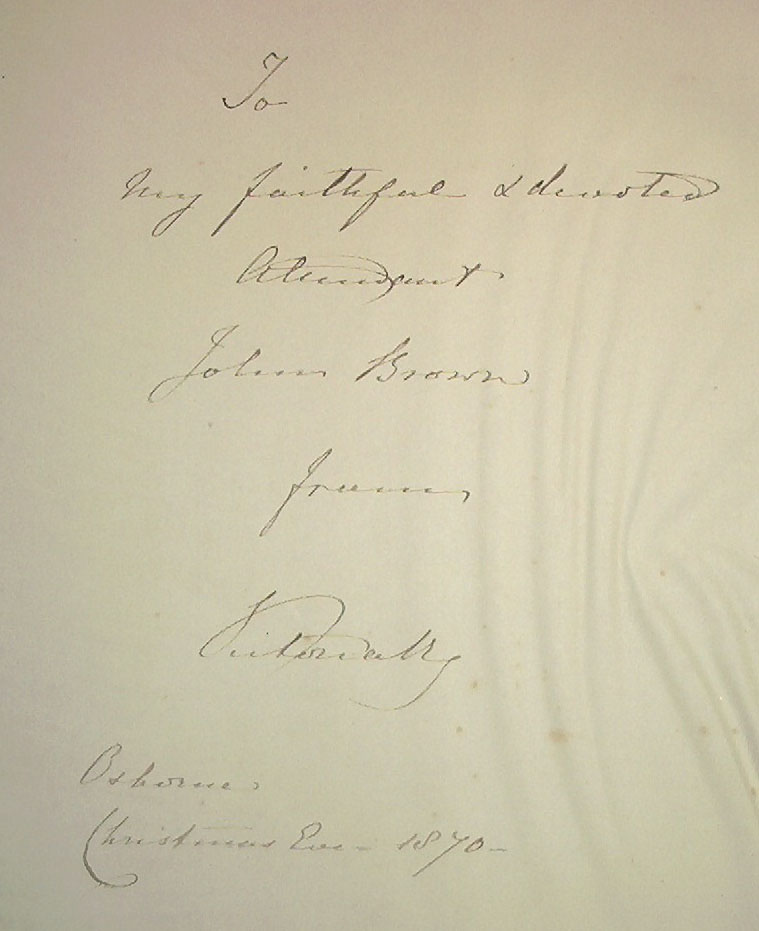 To
my faithful & devoted
Attendant
John Brown
from
Victoria R
Osborne
Christmas Eve – 1870 –